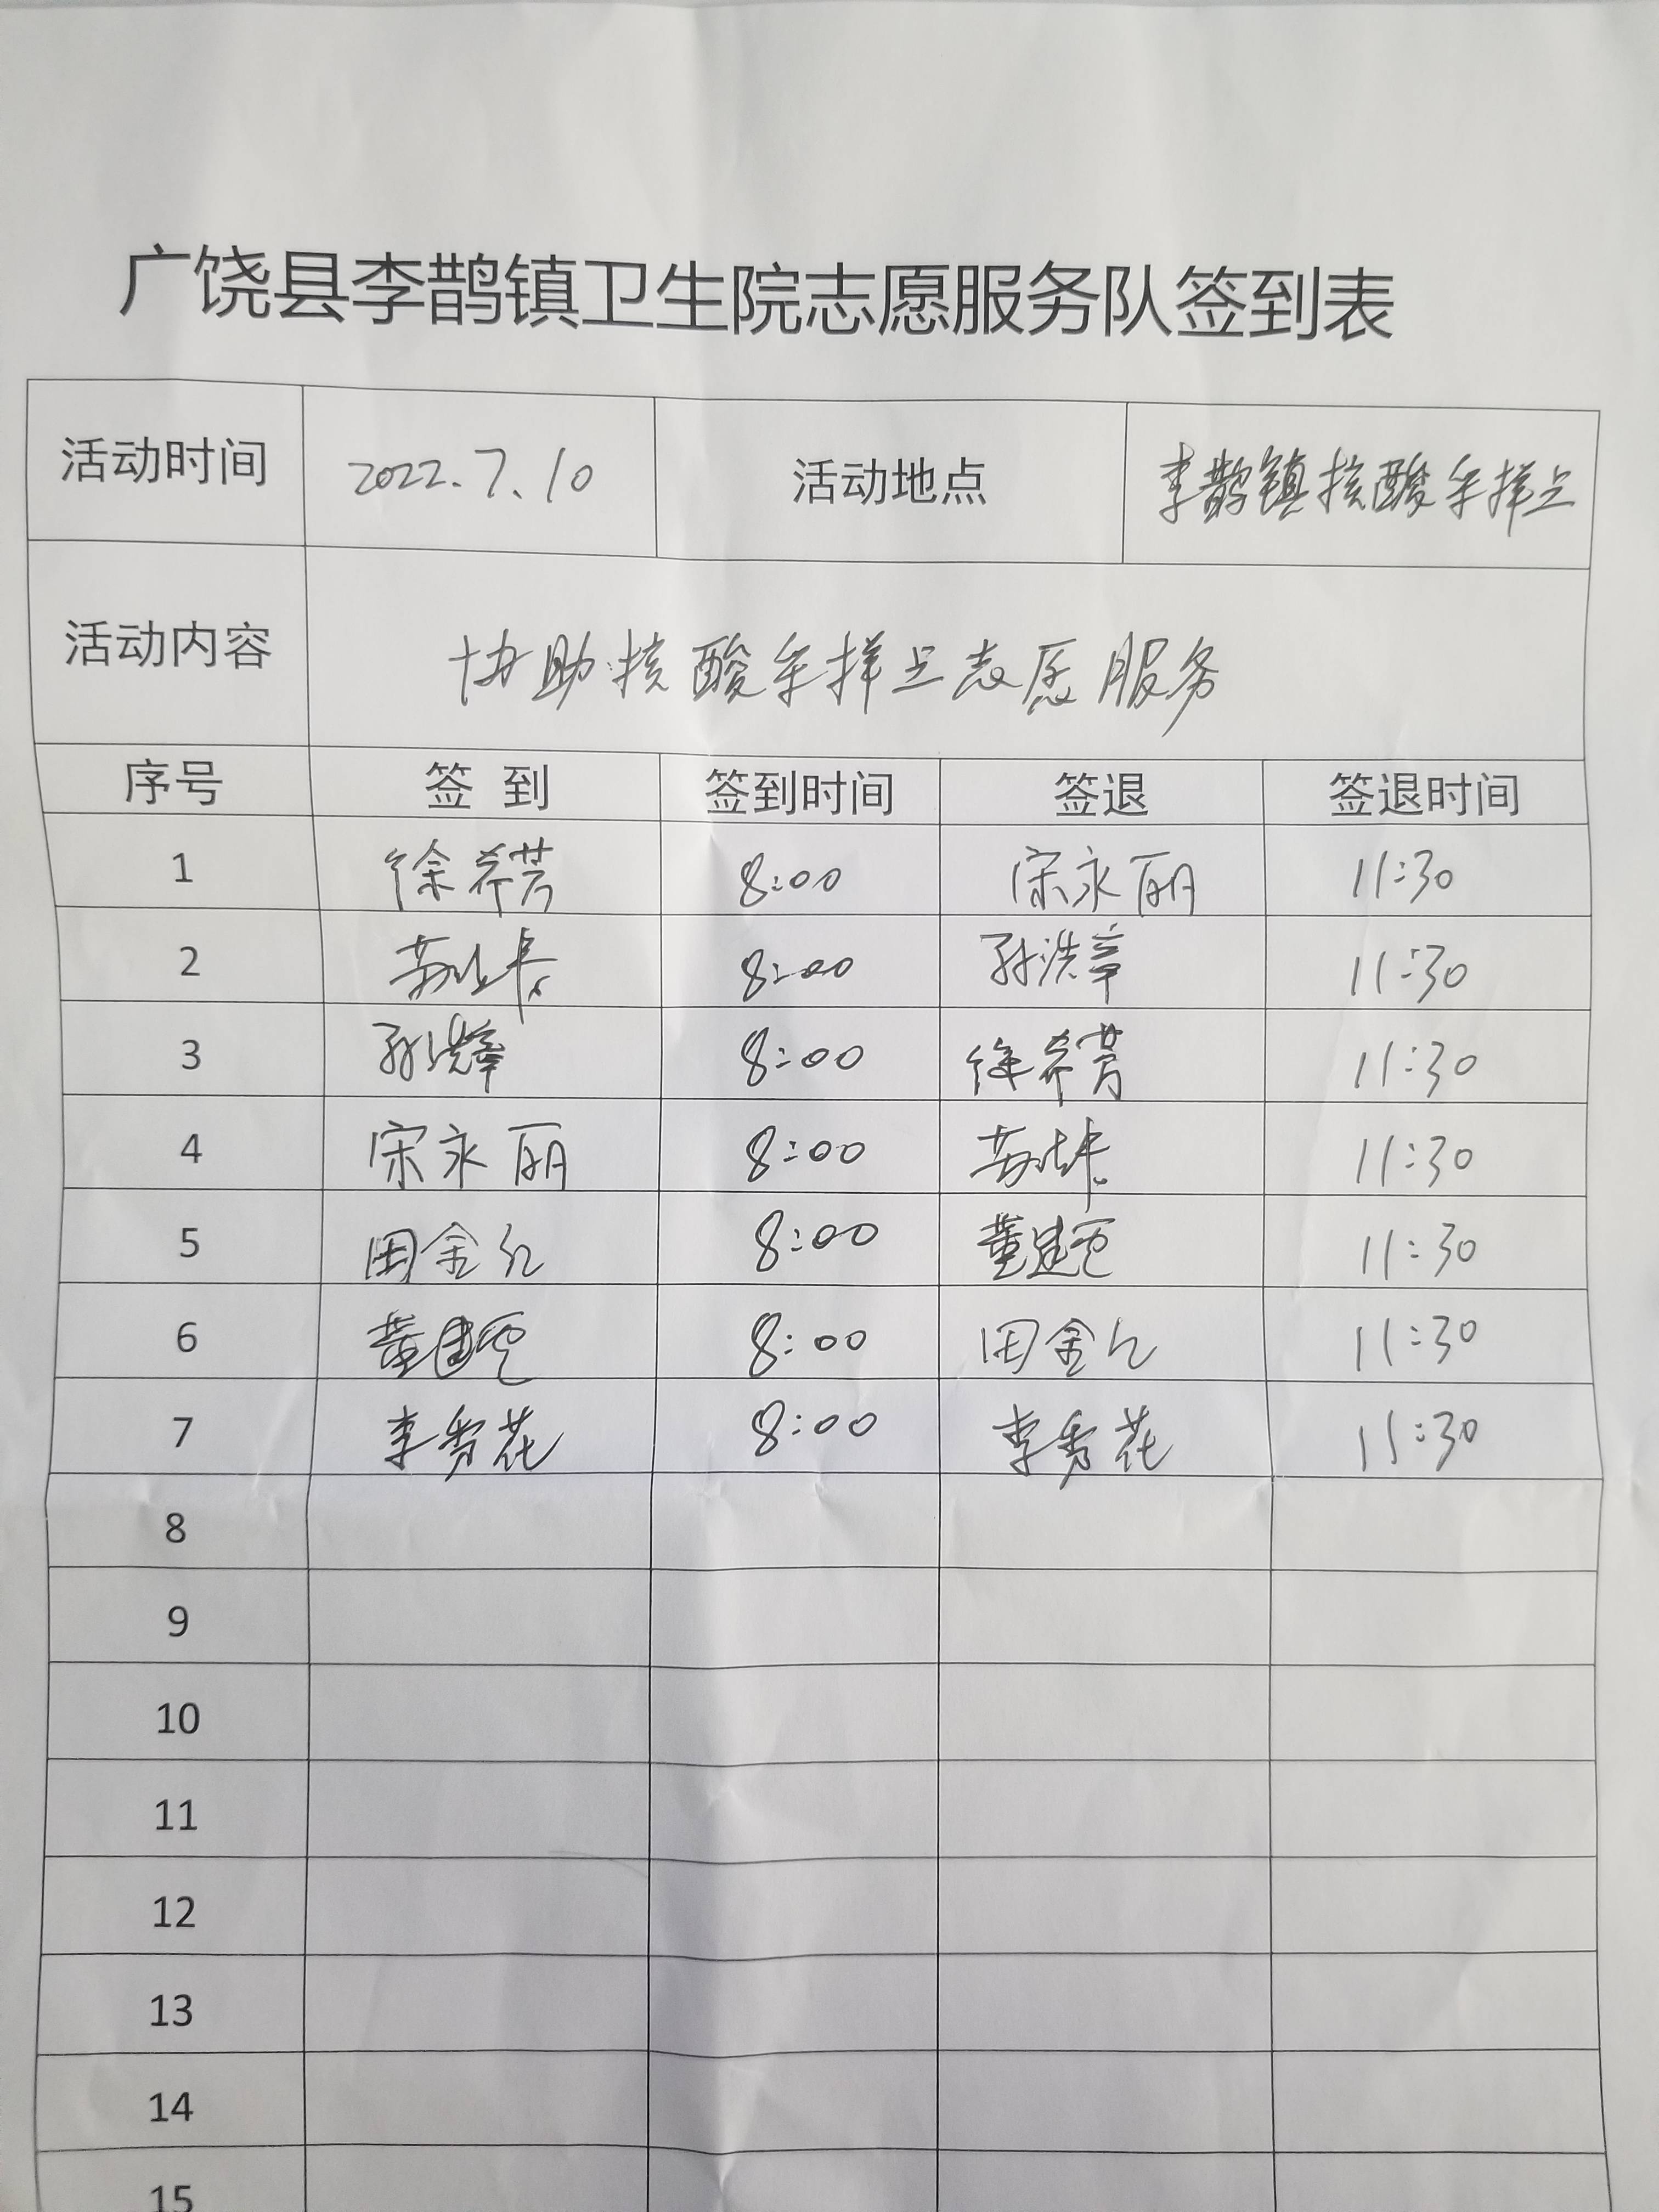 广饶县李鹊镇卫生院志愿服务队签到表
活动时间 2022.7.10 活动地点 李鹊镇核酸采样点
活动内容 协助核酸采样点志愿服务
序号 签到 签到时间 签退 签退时间
1 徐希芳 8:00 宋永丽 11:30
2 8:00 孙洪章 11:30
3 孙洪章 8:00 徐希芳 11:30
4 宋永丽 8:00 11:30
5 田金红 8:00 董建 11:30
6 董建 8:00 田金红 11:30
7 李秀花 8:00 李秀花 11:30
8
9
10
11
12
13
14
15